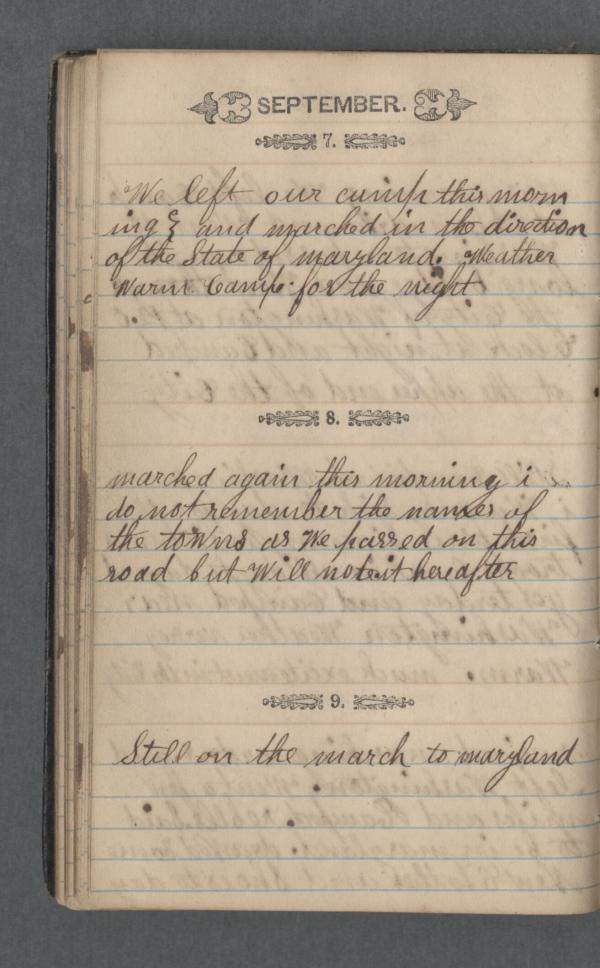 SEPTEMBER.
7.
We left our camp this morn
ing & and marched in the direction
of the State of maryland. Weather
Warm Camp for the night
8.
marched again this morning i
do not remember the names of
the towns as We passed on this
road but Will note it hereafter
9.
Still on the march to maryland